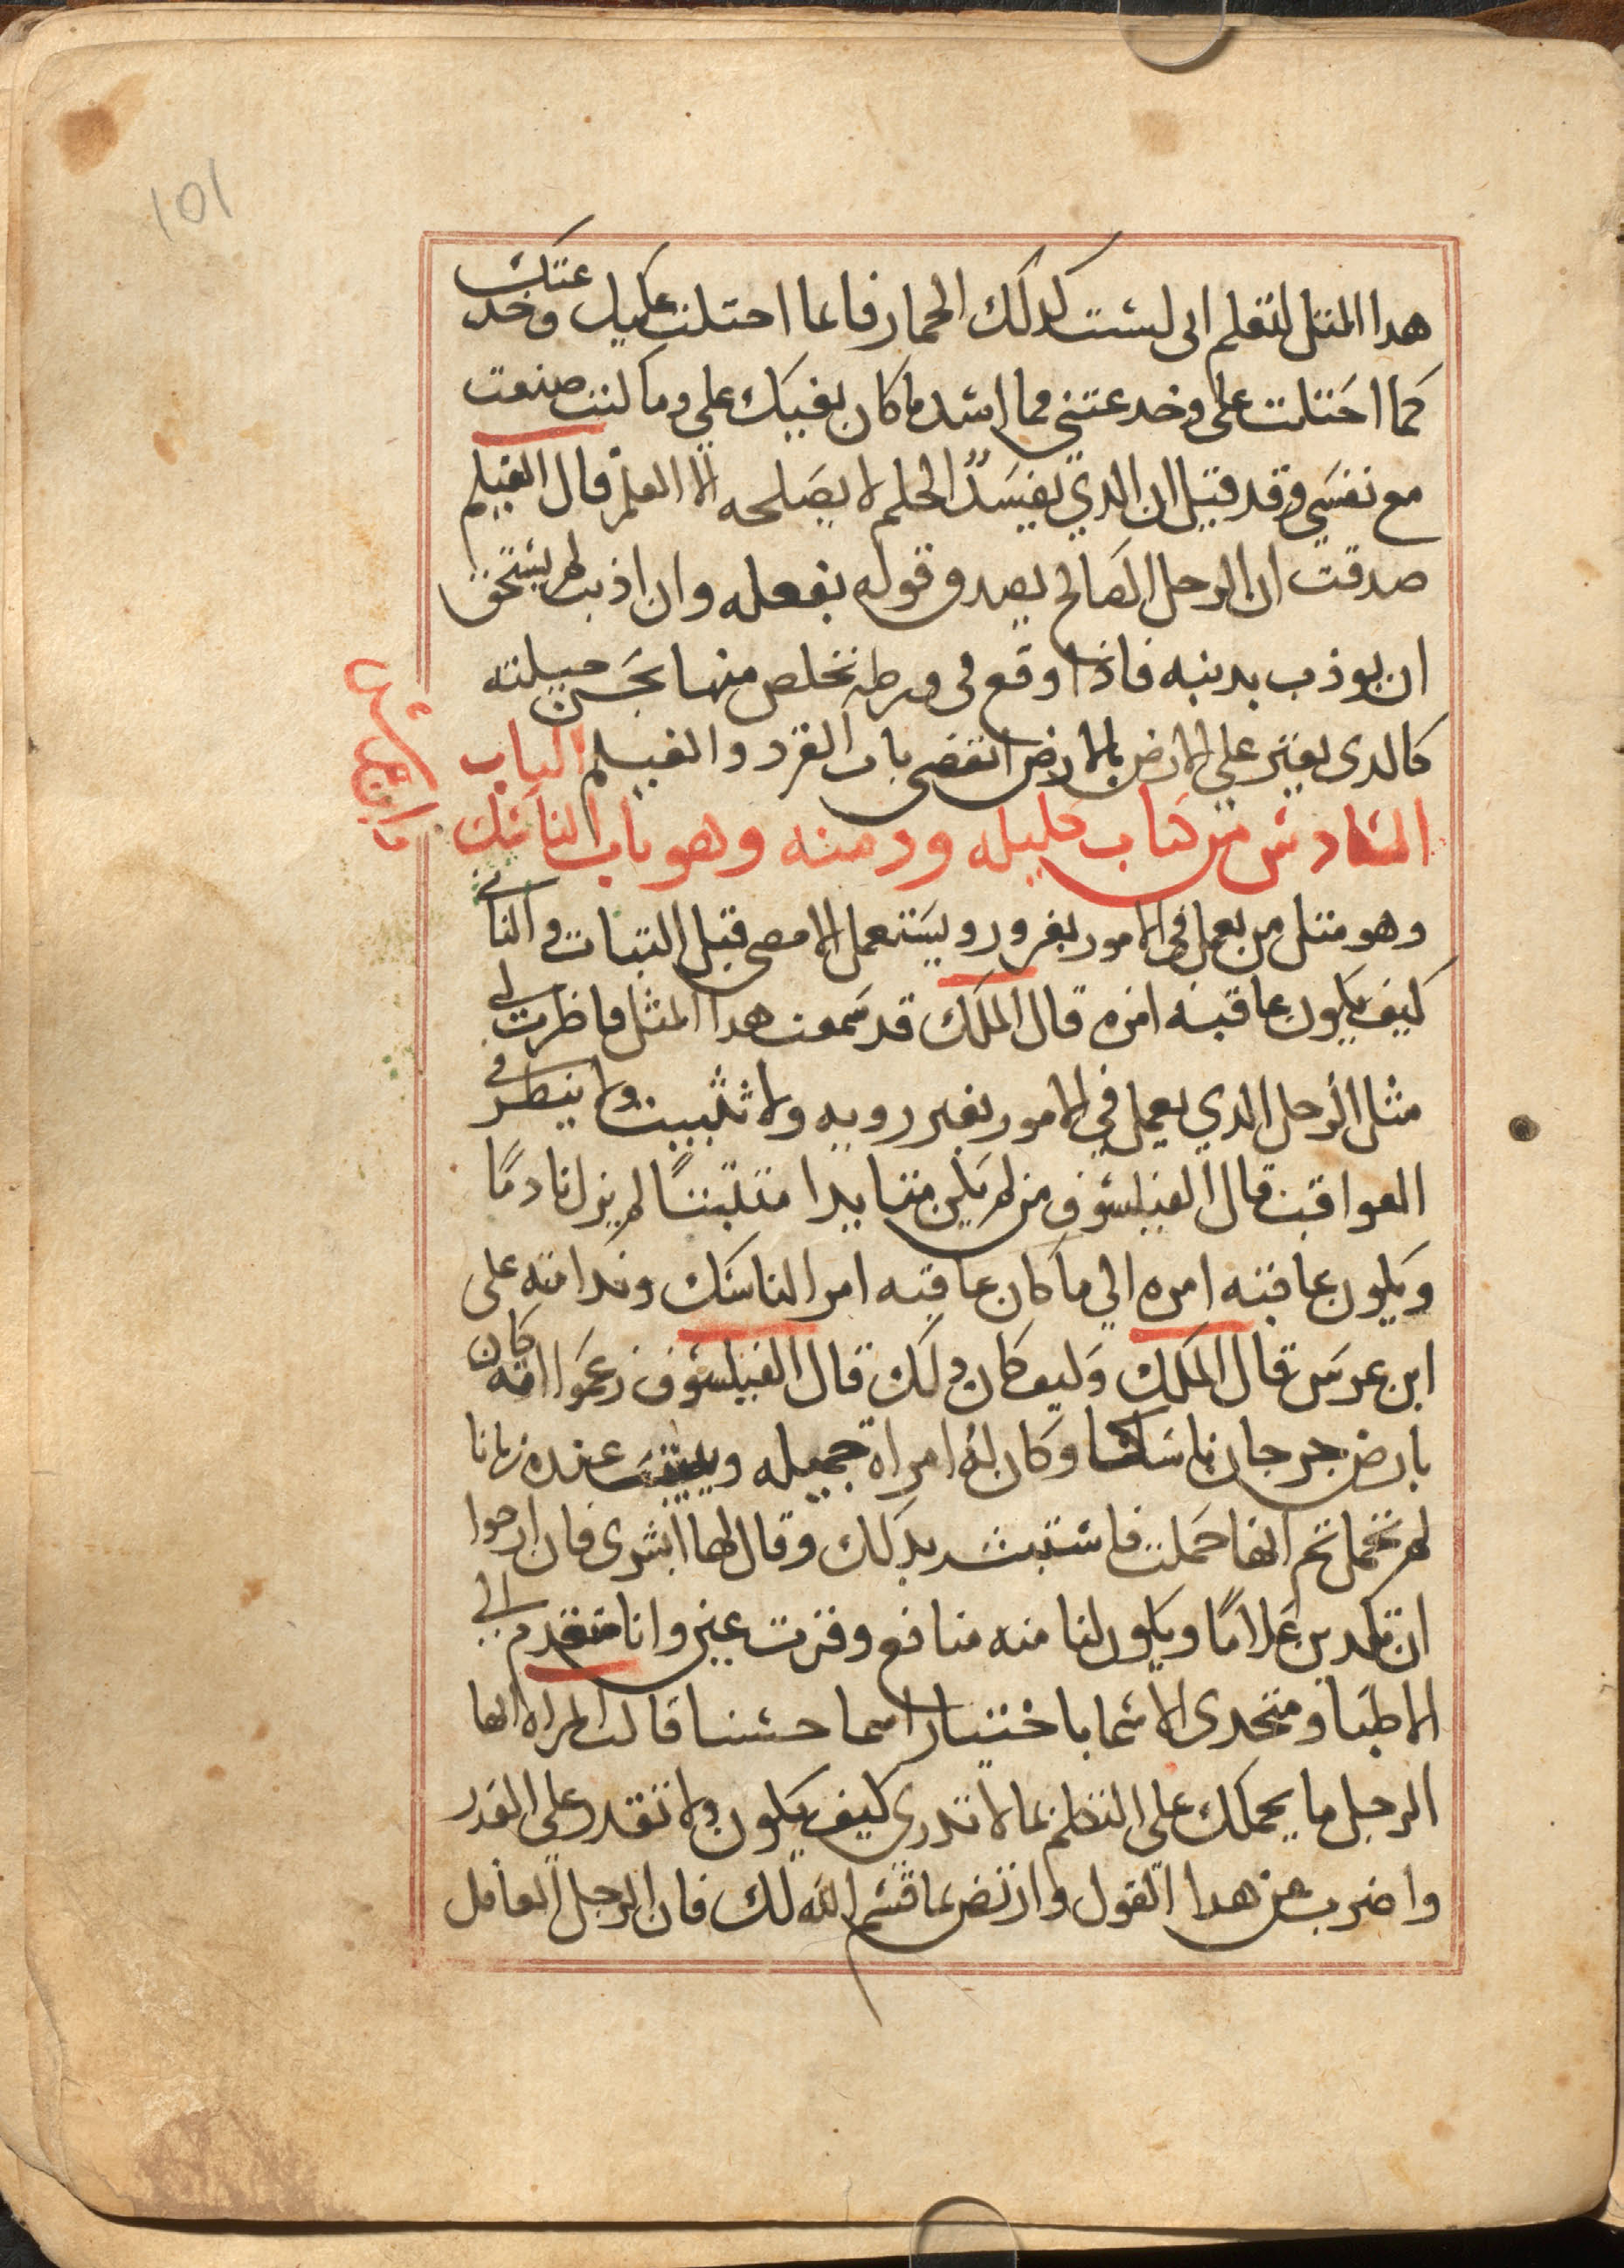 101
هدا المتل لتعلم انى لست كدلك الحمار فانما احتلت عليك وخدعتك
كما احتلت علي وخدعتني فما اشد ما كان بغيك علي وما كنت صنعت
مع نفسي وقد قيل ان الدي يفسده الحلم لا يصلحه الا العلم قال الغيلم
صدقت ان الرجل الصالح يصدق قوله بفعله وان اذنب لم يستحق
ان يوذب بدنبه فاذا وقع في ورطه تخلص منها بحسن حيلته
كالدى يعتر على الارض بالارض انقضى باب القرد والغيلم الباب
السادس من كتاب كليله ودمنه وهو باب الناسك
وهو متل من يعمل في الامور بغرور ويستعمل الامضى قبل التبات والتانى
كيف يكون عاقبة امره قال الملك قد سمعت هدا المثل فاضرب لي
مثل الرجل الدي يعمل في الامور بغير رويه ولا تثبيت ولا ينظر في
العواقب قال الفيلسوف من لم يكن متايدا متثبتا لم يزل نادمًا
ويكون عاقبته امره الي ما كان عاقبه امر الناسك وندامته على
ابن عرس قال الملك وكيف كان دلك قال الفيلسوف زعموا انه كان
بارض جرجان ناسكا وكان له امراة جميله عنده زمانا
لم تحمل تم انها حملت فاستبشر بدلك وقال لها ابشرى فان ارجوا
ان تلدين غلامًا ويكون لنا منه منافع وقرت عين وانا متقدم الي
الاطبا ومتحدى الاسما باختيار اسما حسنا قالت المراه ايها
الرجل ما يحملك على التكلم بما لا تدرى كيف يكون ولا تقدر على القدر
واضرب عن هدا القول وارتض بما قسم الله لك فان الرجل العاقل